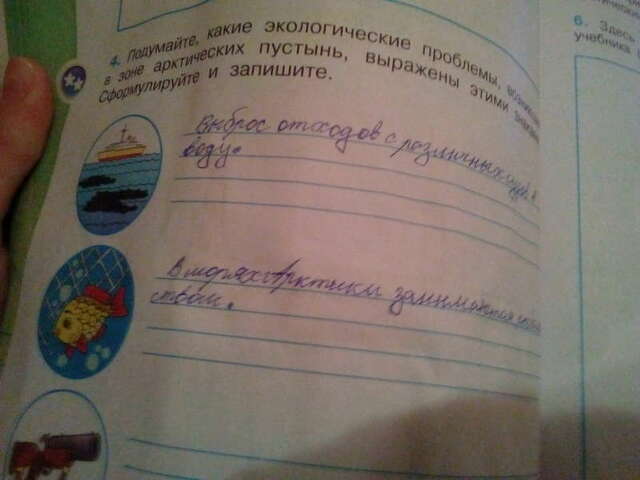 4. Подумайте, какие экологические проблемы,
в зоне арктических пустынь, выражены этими
Сформулируйте и запишите.
Выброс отходов с различных
воду.
В морях Арктики
ством.
6. Здесь
учебника